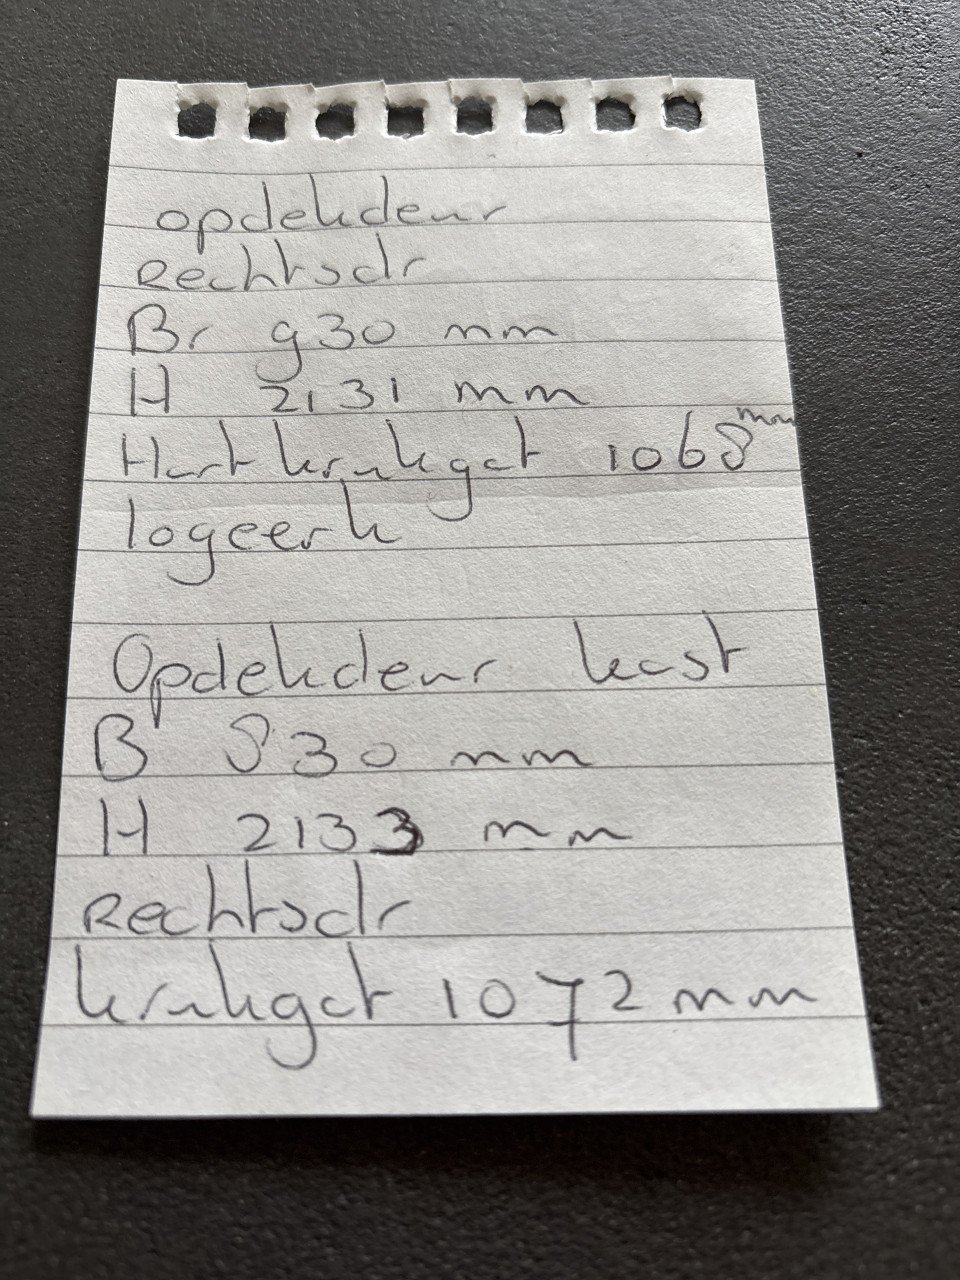 opdekdeur
Rechtsdr
Br 930 mm
H 2131 mm
Hart krukgat 1068 mm
logeerk
Opdekdeur kast
B 830 mm
H 2133 mm
Rechtsdr
krukgat 1072 mm